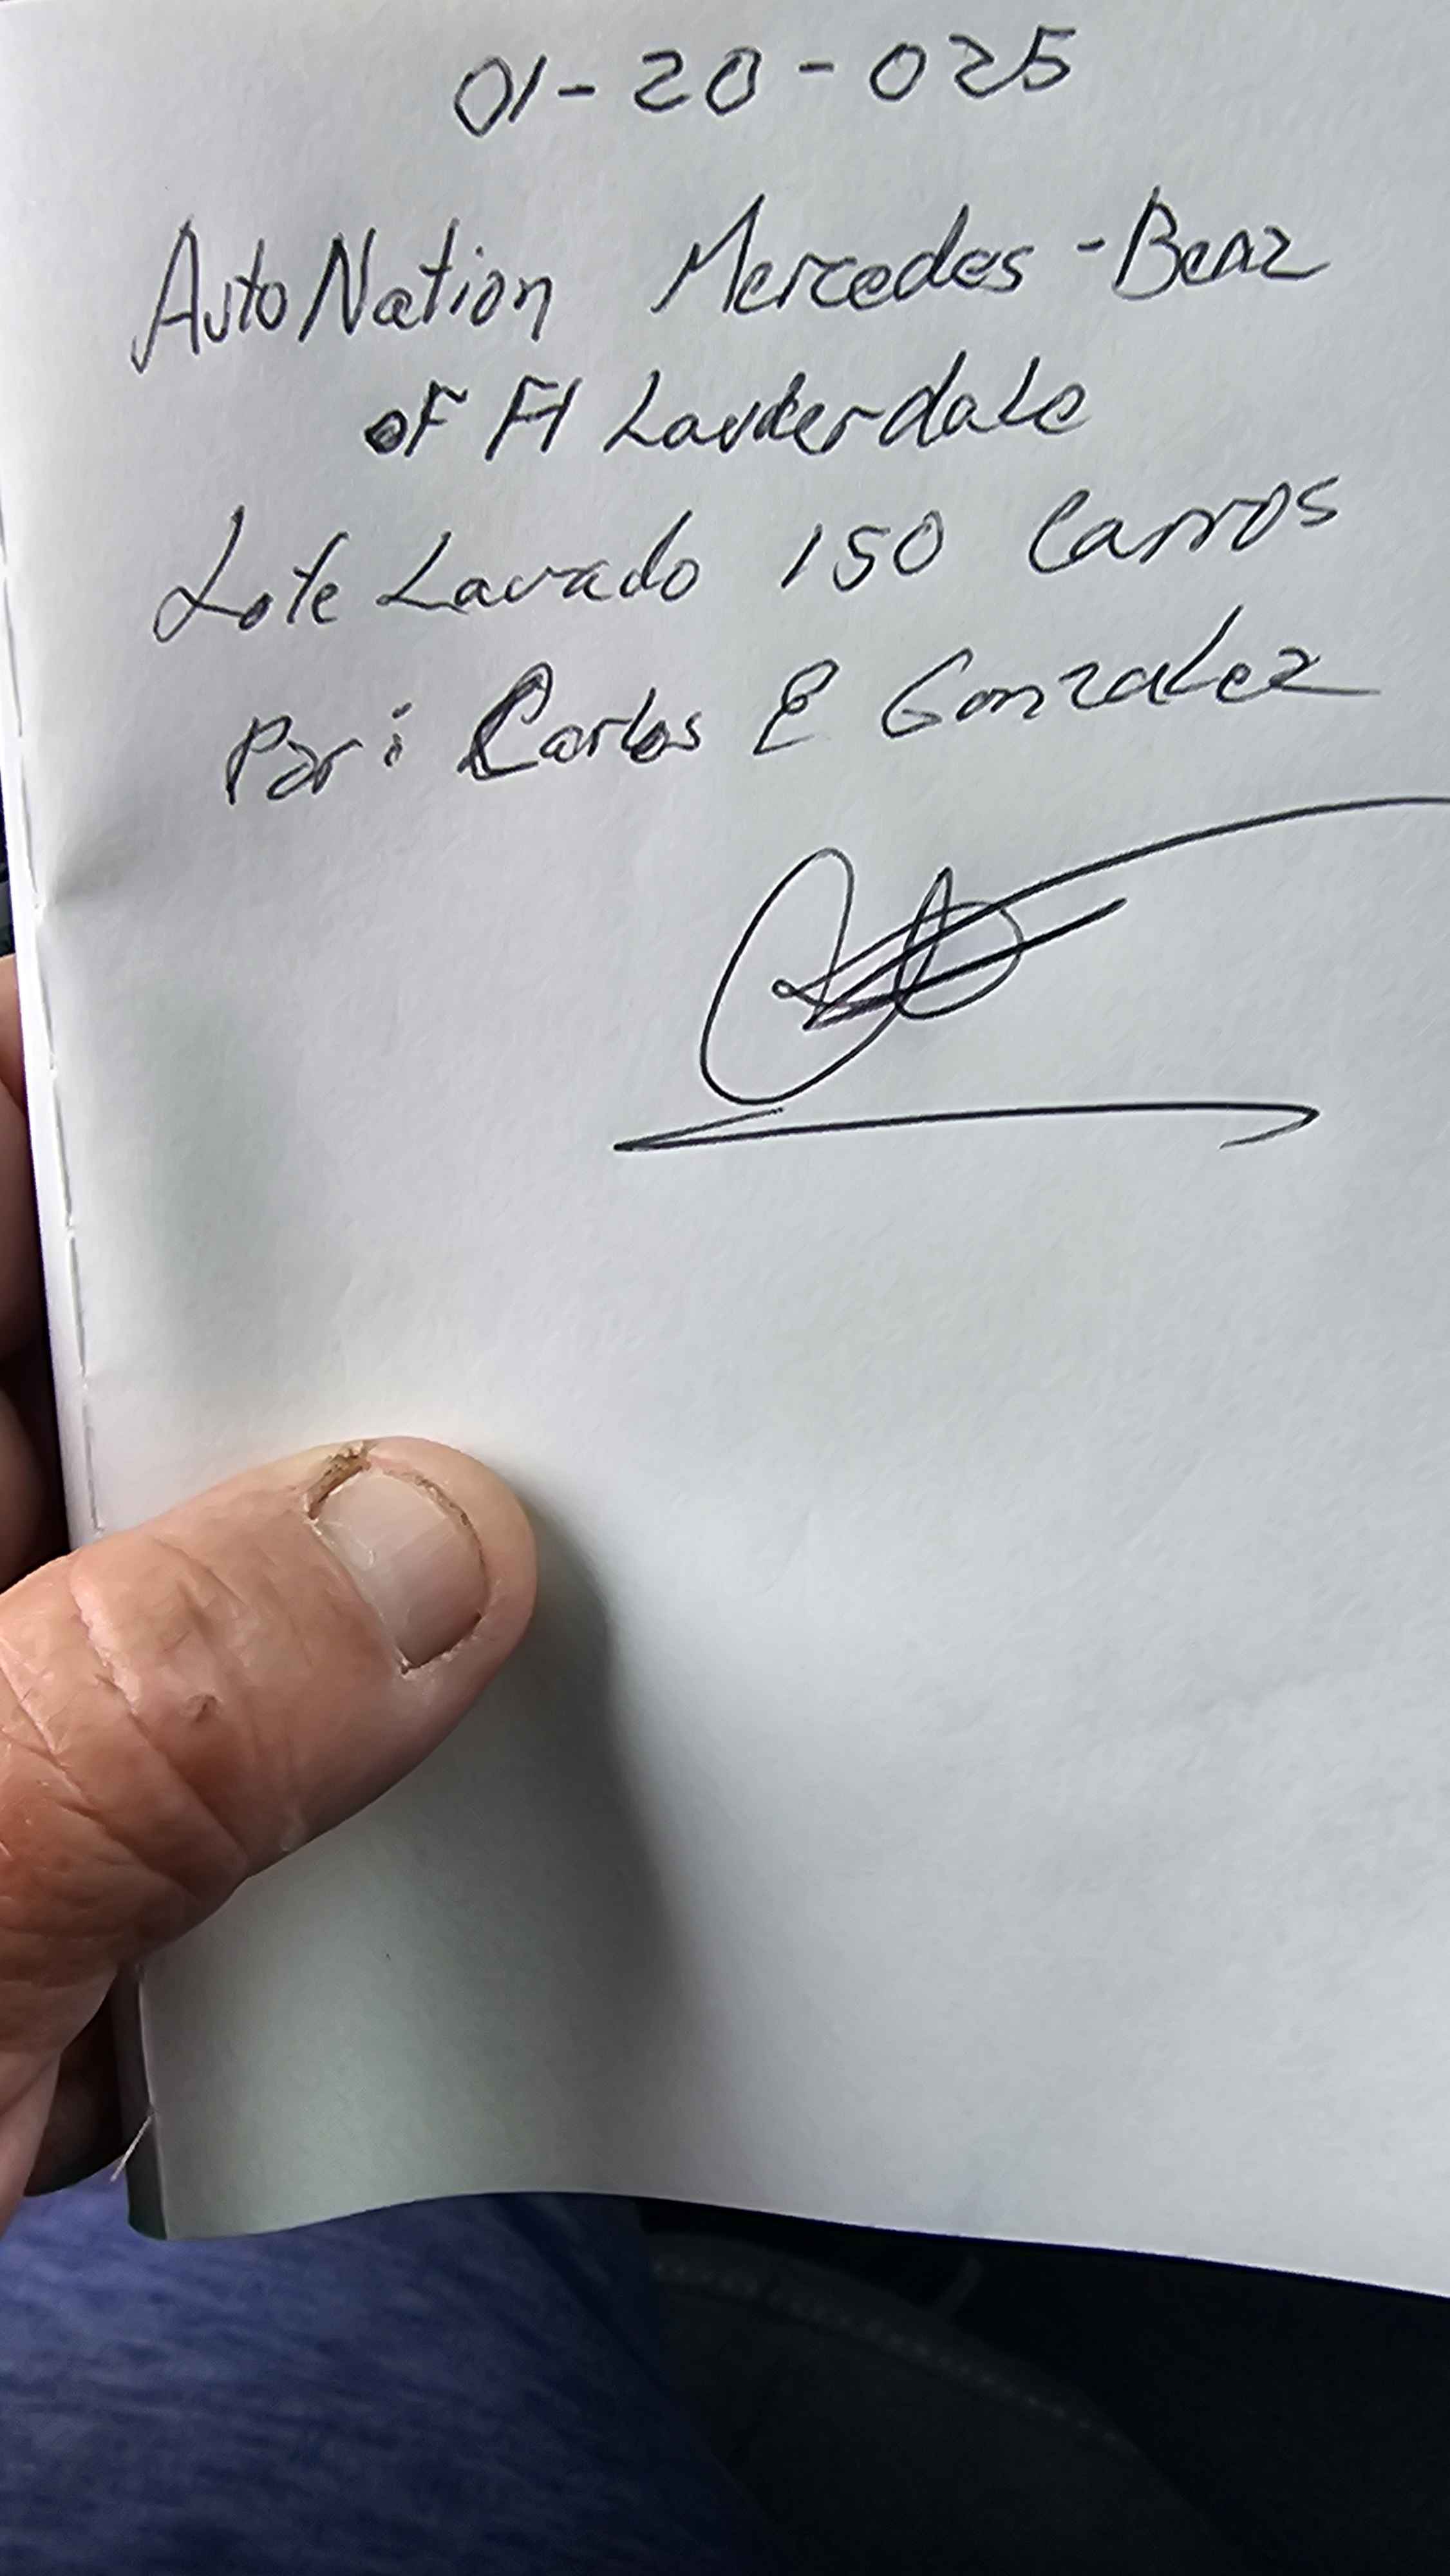 01-20-025
AutoNation Mercedes-Benz
of Ft Lauderdale
Lote Lavado 150 Carros
Por: Carlos E Gonzalez